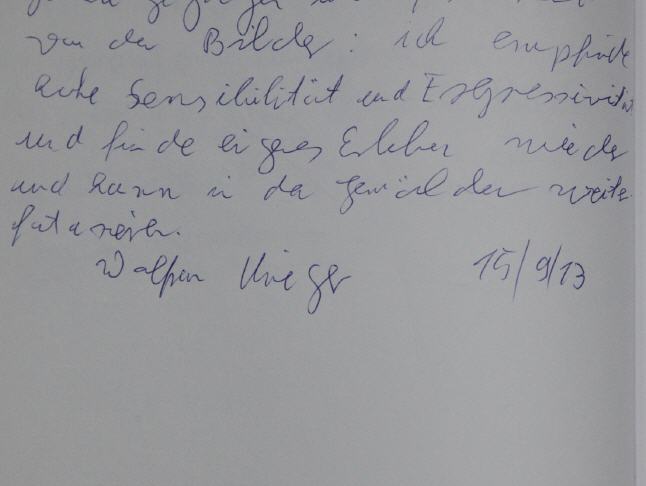 von den Bilder: ich empfinde
hohe Sensibilität und Expressivität
und finde eigenes Erleben wieder
und kann in den Gemälden weiter
fantasieren.
Krieger 15/9/13